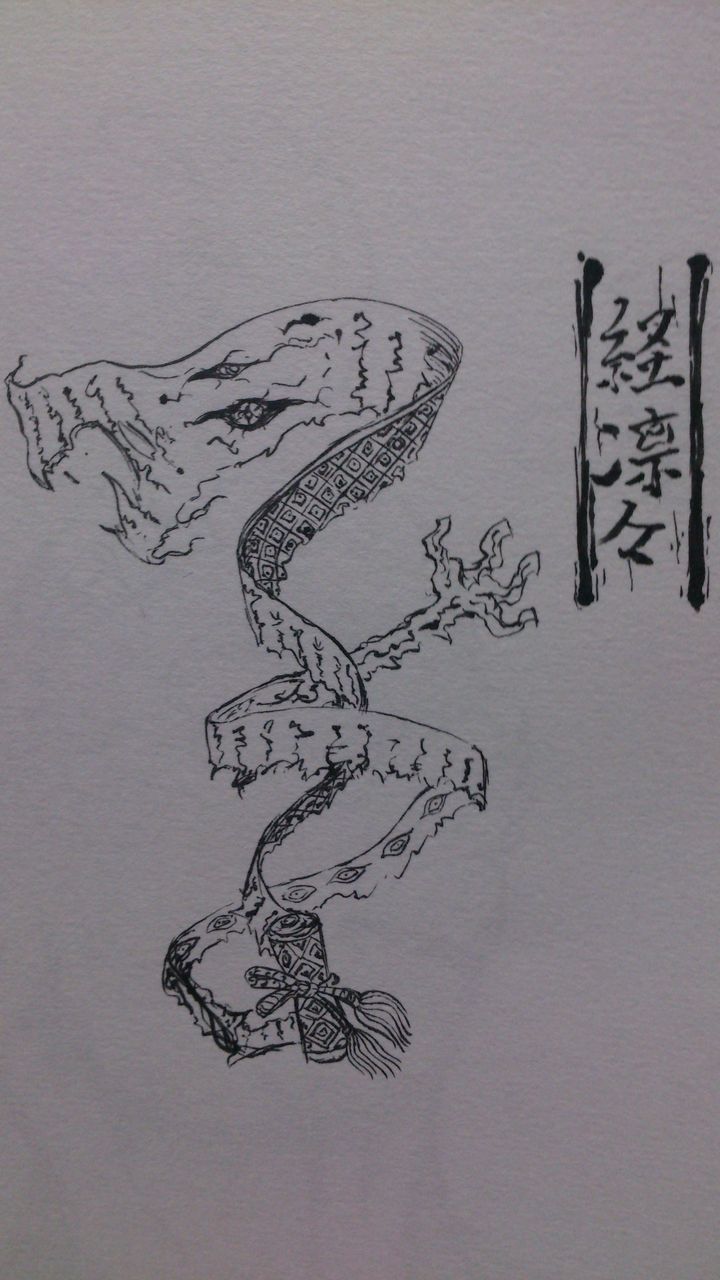 経凛々